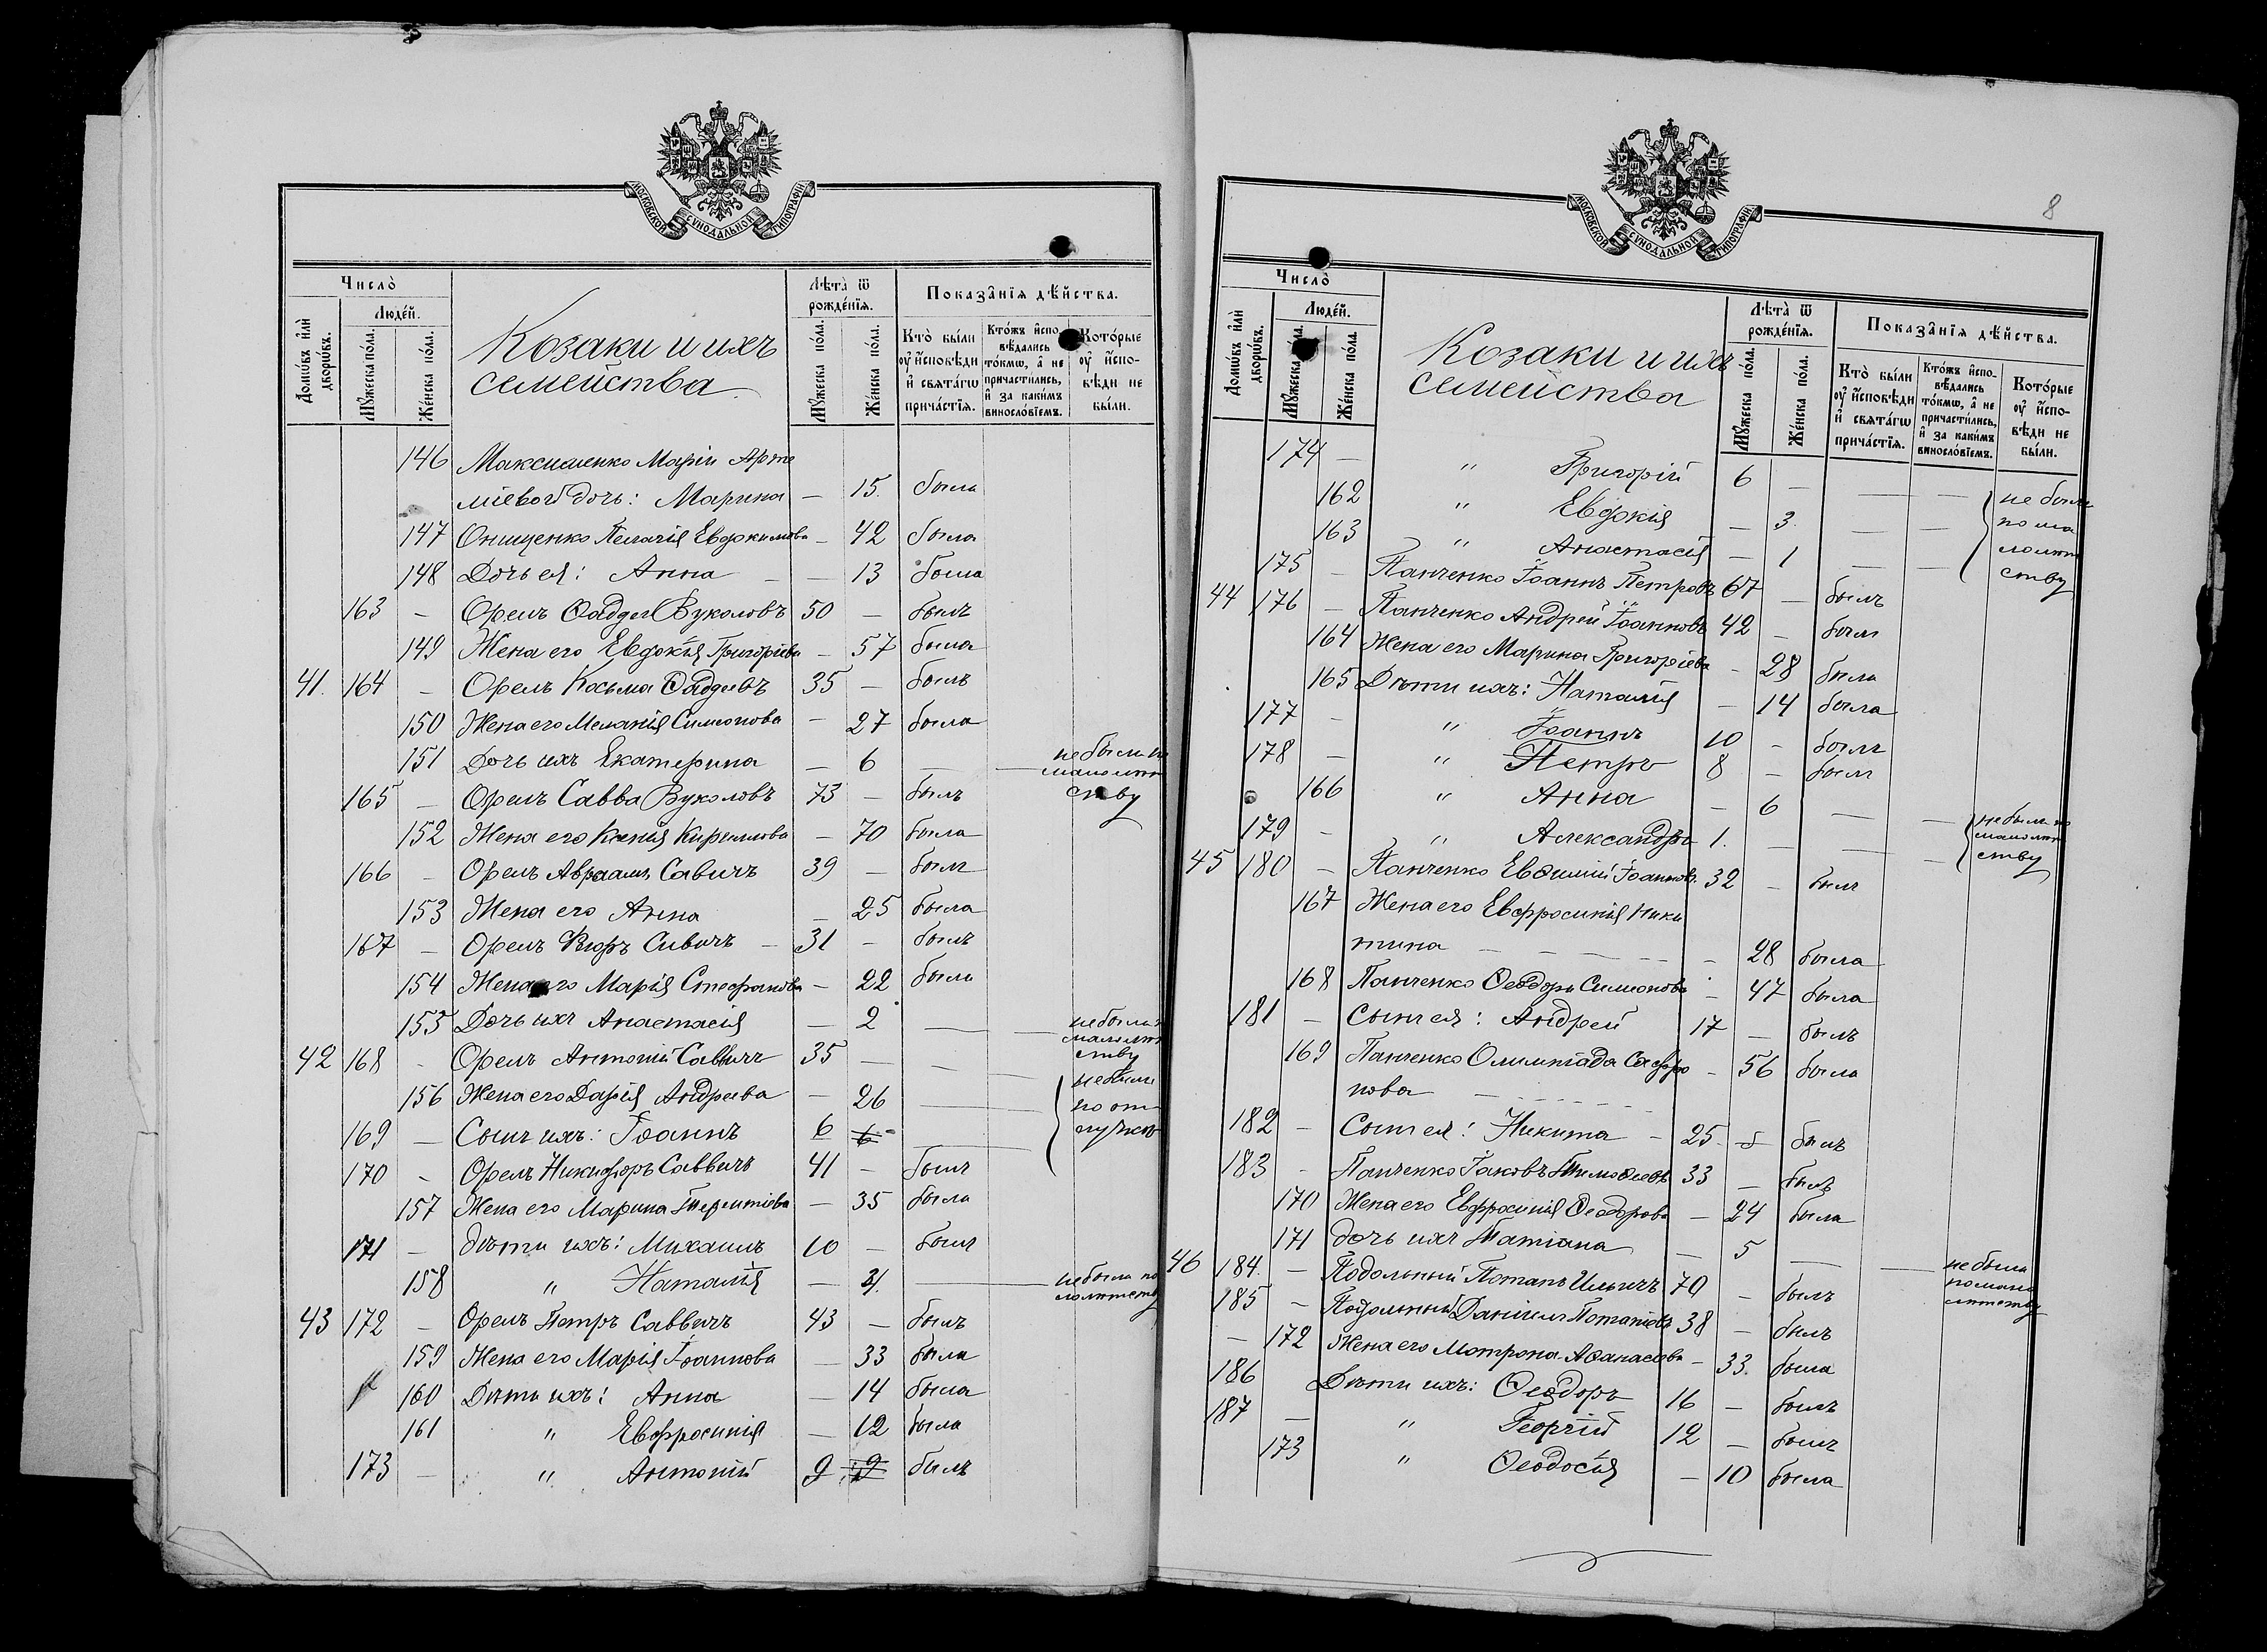 МОСКОВСКОЙ СѴНОДАЛЬНОЙ ТИПОГРАФІИ
Число̀
Домѡ́въ и҆лѝ дворѡ́въ.
Люде́й.
Мꙋ́жеска по́ла.
Же́нска по́ла.
Козаки и ихъ
семейства
Лѣта̀ ѿ рожде́нїѧ.
Мꙋ́жеска по́ла.
Же́нска по́ла.
Показа̑нїѧ дѣ́йства.
Кто̀ бы́ли ᲂу҆ и҆сповѣ́ди и҆ свѧта́гѡ прича́стїѧ.
Кто́жъ и҆спо-вѣ́дались то́кмѡ, а҆ не причасти́лись, и҆ за каки́мъ виносло́вїемъ.
Кото́рые ᲂу҆ и҆спо-вѣ́ди не бы́ли.
146 Максименко Маріи Арте
міевой дочь: Марина — 15. была
147 Онищенко Пелагія Евдокимова — 42 была
148 Дочь ея: Анна — — 13 была
163 — Орелъ Ѳаддей Вуколовъ 50 — былъ
149 Жена его Евдокія Григоріева — 57 была
41. 164 — Орелъ Косьма Ѳаддеевъ 35 — былъ
150 Жена его Меланія Симеонова — 27 была
151 Дочь ихъ Екатерина — 6 — — не была по
малолѣт
165 — Орелъ Савва Вуколовъ 73 — былъ ству
152 Жена его Ксенія Кириллова — 70 была
166 — Орелъ Авраамъ Савичъ 39 — былъ
153 Жена его Анна — 25 была
167 — Орелъ Ѳеодоръ Савичъ — 31 — былъ
154 Жена его Марія Стефанова — 22 была
155 Дочь ихъ Анастасія — 2 — — не была по
малолѣт
ству
42 168 - Орелъ Антоній Саввичъ 35 — — —
156 Жена его Дарія Андреева — 26 — — не были
по от
169 — Сынъ ихъ: Іоаннъ 6 6 — лучкѣ
170 - Орелъ Никифоръ Саввичъ 41 — былъ
157 Жена его Марина Терентіева — 35 была
171 — дѣти ихъ: Михаилъ 10 — былъ
158 " Наталія — 3. — не была по
лолѣтств
43 172 — Орелъ Петръ Саввичъ 43 — былъ
159 Жена его Марія Іоаннова — 33 была
160 Дѣти ихъ: Анна — 14 была
161 " Евфросинія — 12 была
173 — " Антоній 9 9 былъ
8
МОСКОВСКОЙ СѴНОДАЛЬНОЙ ТИПОГРАФІИ
Число̀
Домѡ́въ и҆лѝ дворѡ́въ.
Люде́й.
Мꙋ́жеска по́ла.
Же́нска по́ла.
Козаки и ихъ
семейства
Лѣта̀ ѿ рожде́нїѧ.
Мꙋ́жеска по́ла.
Же́нска по́ла.
Показа̑нїѧ дѣ́йства.
Кто̀ бы́ли ᲂу҆ и҆сповѣ́ди и҆ свѧта́гѡ прича́стїѧ.
Кто́жъ и҆спо-вѣ́дались то́кмѡ, а҆ не причасти́лись, и҆ за каки́мъ виносло́вїемъ.
Кото́рые ᲂу҆ и҆спо-вѣ́ди не бы́ли.
174 — " Григорій 6 — — — не были
162 " Евдокія — 3. — — по ма
163 " Анастасія — 1 — — лолѣт
ству
175 — Панченко Іоаннъ Петровъ 67 — былъ
44 176 — Панченко Андрей Іоанновъ 42 — былъ
164 Жена его Марина Григоріева — 28 была
165 Дѣти ихъ: Наталія — 14 была
177 — " Іоаннъ 10 - былъ
178 — " Петръ 8 — былъ
166 " Анна — 6 — — не были по
малолѣт
179 — " Александръ 1. — — — ству
45 180 — Панченко Евѳимій Іоаннов. 32 — былъ
167 Жена его Евфросинія Ники
тина — — 28 была
168 Панченко Ѳеодора Симеонова — 47 была
181 — Сынъ ея: Андрей 17 — былъ
169 Панченко Олимпіада Сафро — 56 была
нова
182 — Сынъ ея: Никита — 25 былъ
183 - Панченко Іаковъ Тимоѳеевъ 33 — былъ
170 Жена его Евфросинія Ѳеодорова — 24 была
171 дочь ихъ Татіана — 5 — — не была
по мало
лѣтству
46 184. — Подольный Потапъ Ильичъ 70 — былъ
185 — Подольный Даніилъ Потаповъ 38 — былъ
— 172 Жена его Мотрона Аѳанасіева — 33. была
186 Дѣти ихъ: Ѳеодоръ 16 — былъ
187 — " Георгій 12 — былъ
173 " Ѳеодосія — 10 была